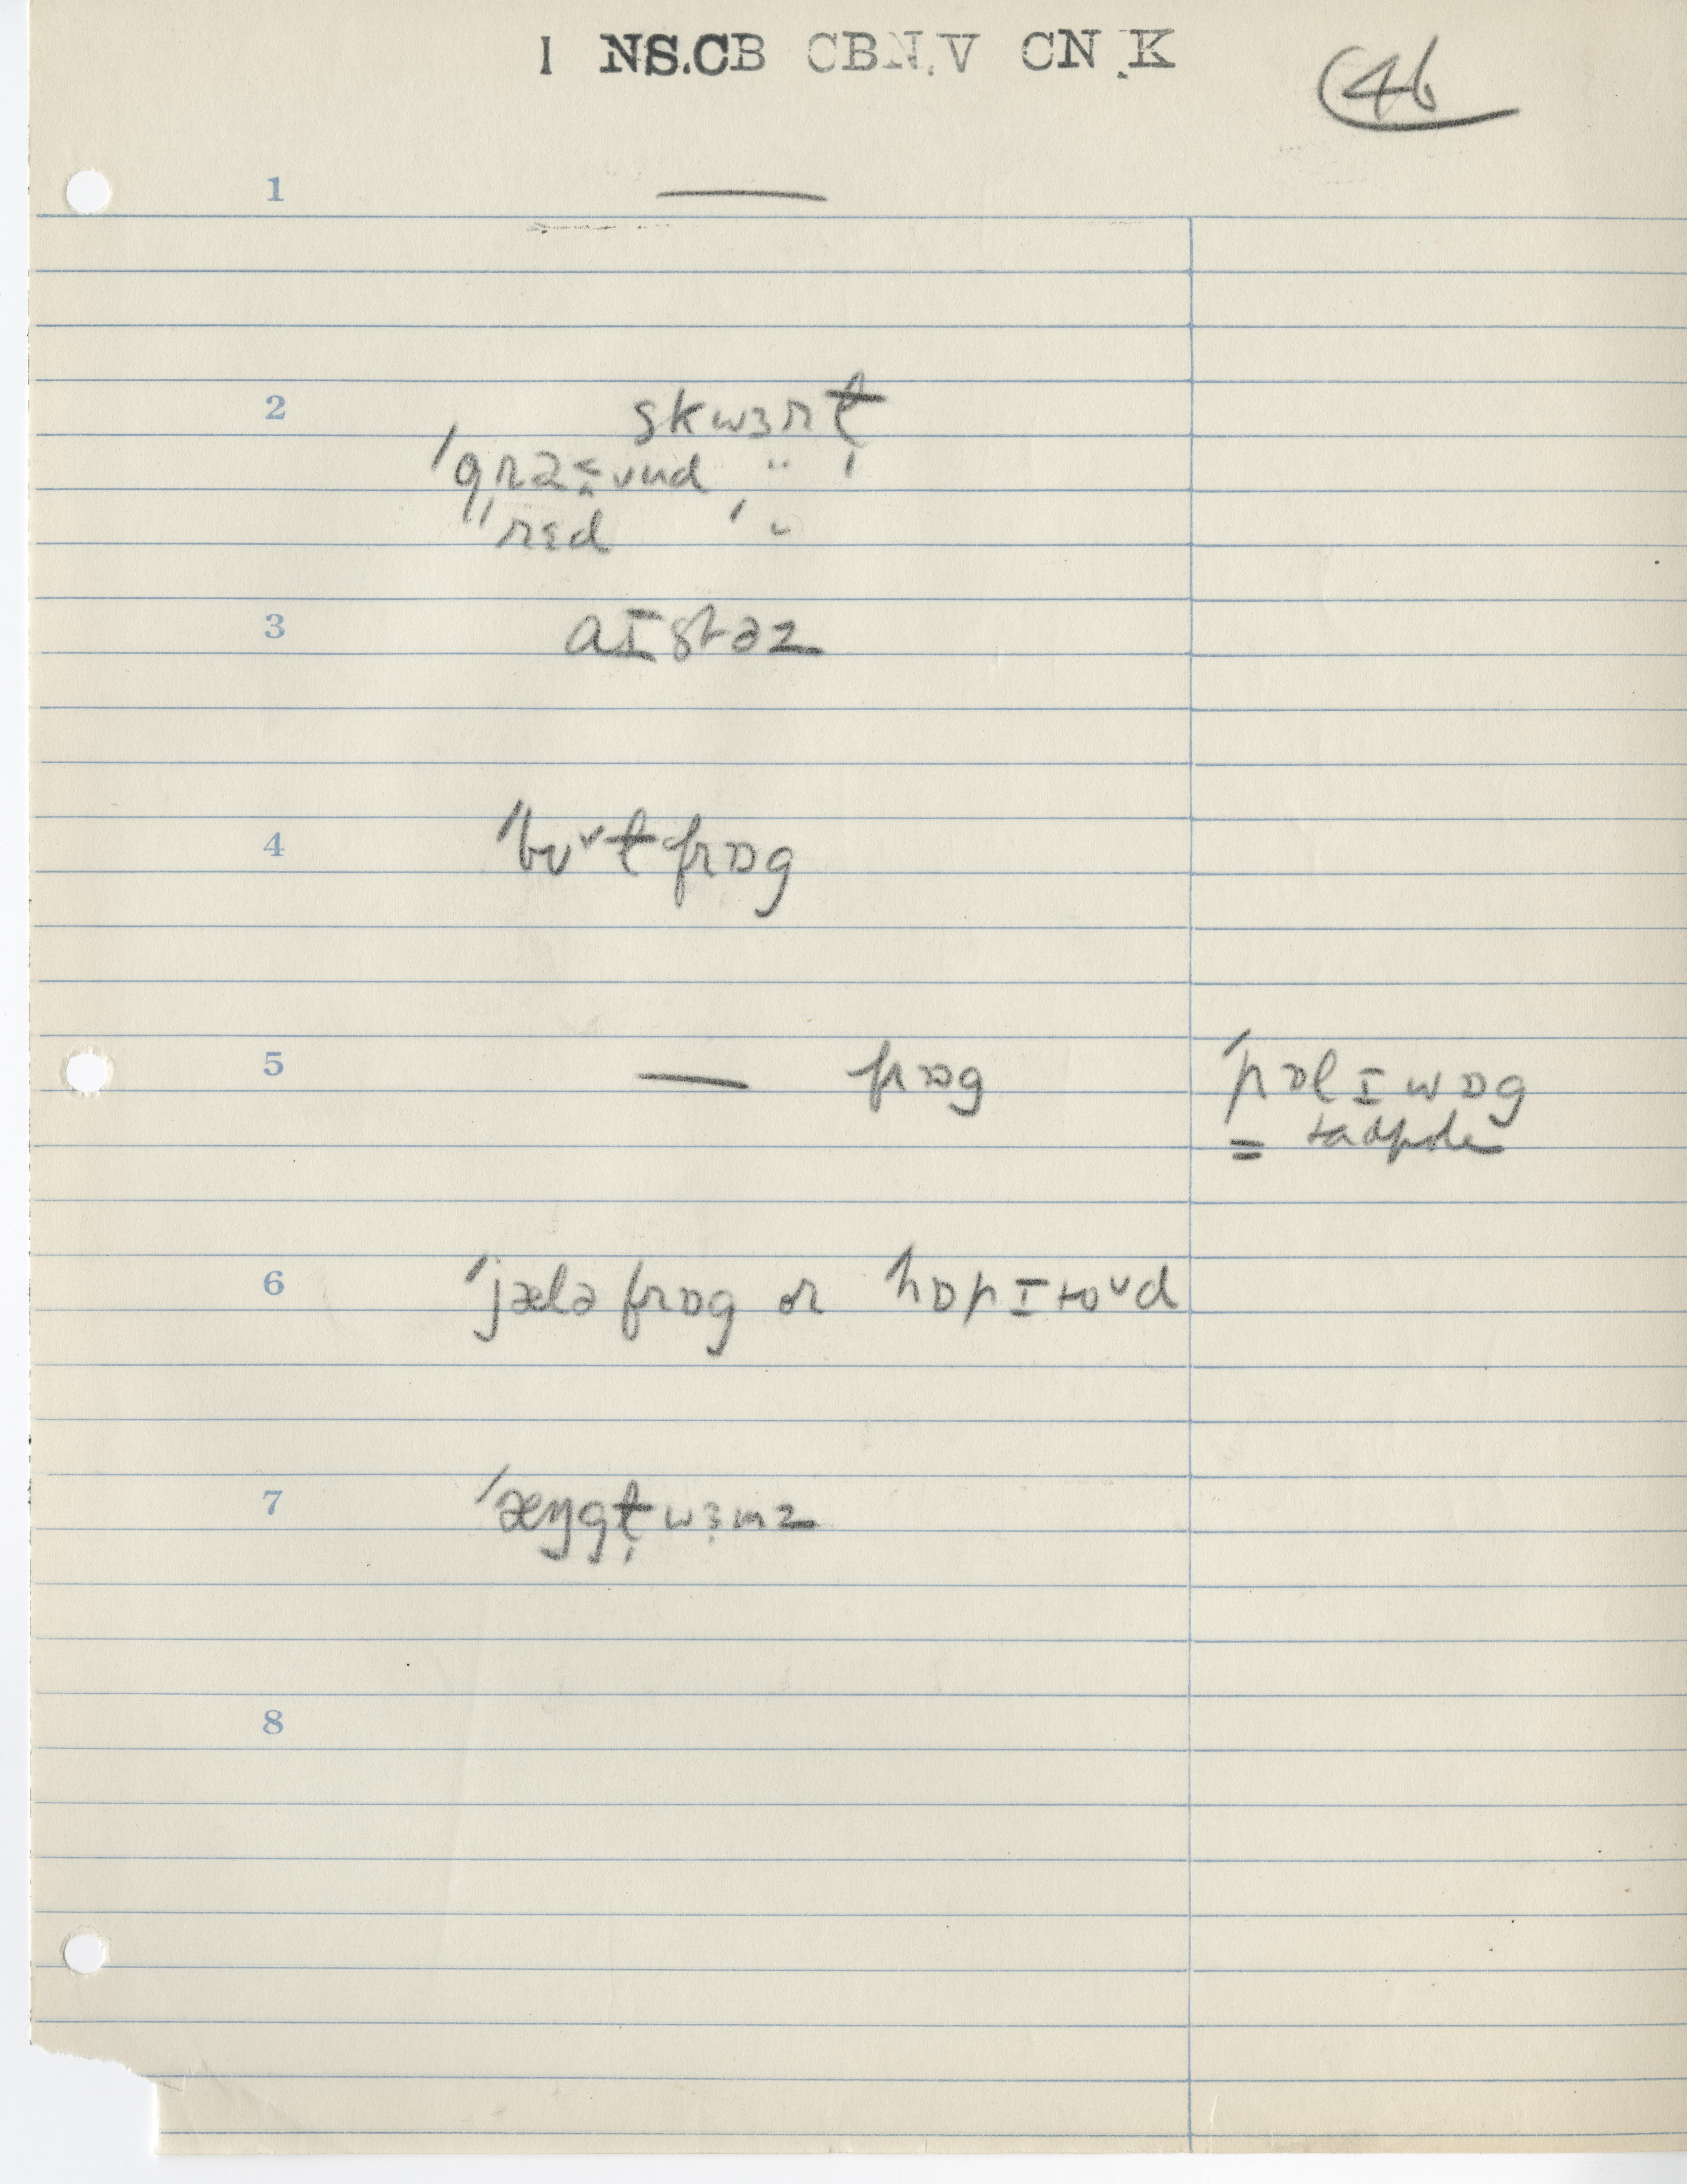 1 NS.CB CBN.V CN.K
46
1 —
2 skwɜrɫ
ˈgraʊnd " "
" rɛd ˈ "
3 aɪstəz
4 ˈbʊˇɫfrɒg
5 — frɒg ˈpɒlɪwɒg
= tadpole
6 ˈjælə frɒg or ˈhɒpɪtoᵛd
7 ˈæŋgɫ̩wɜmz
8